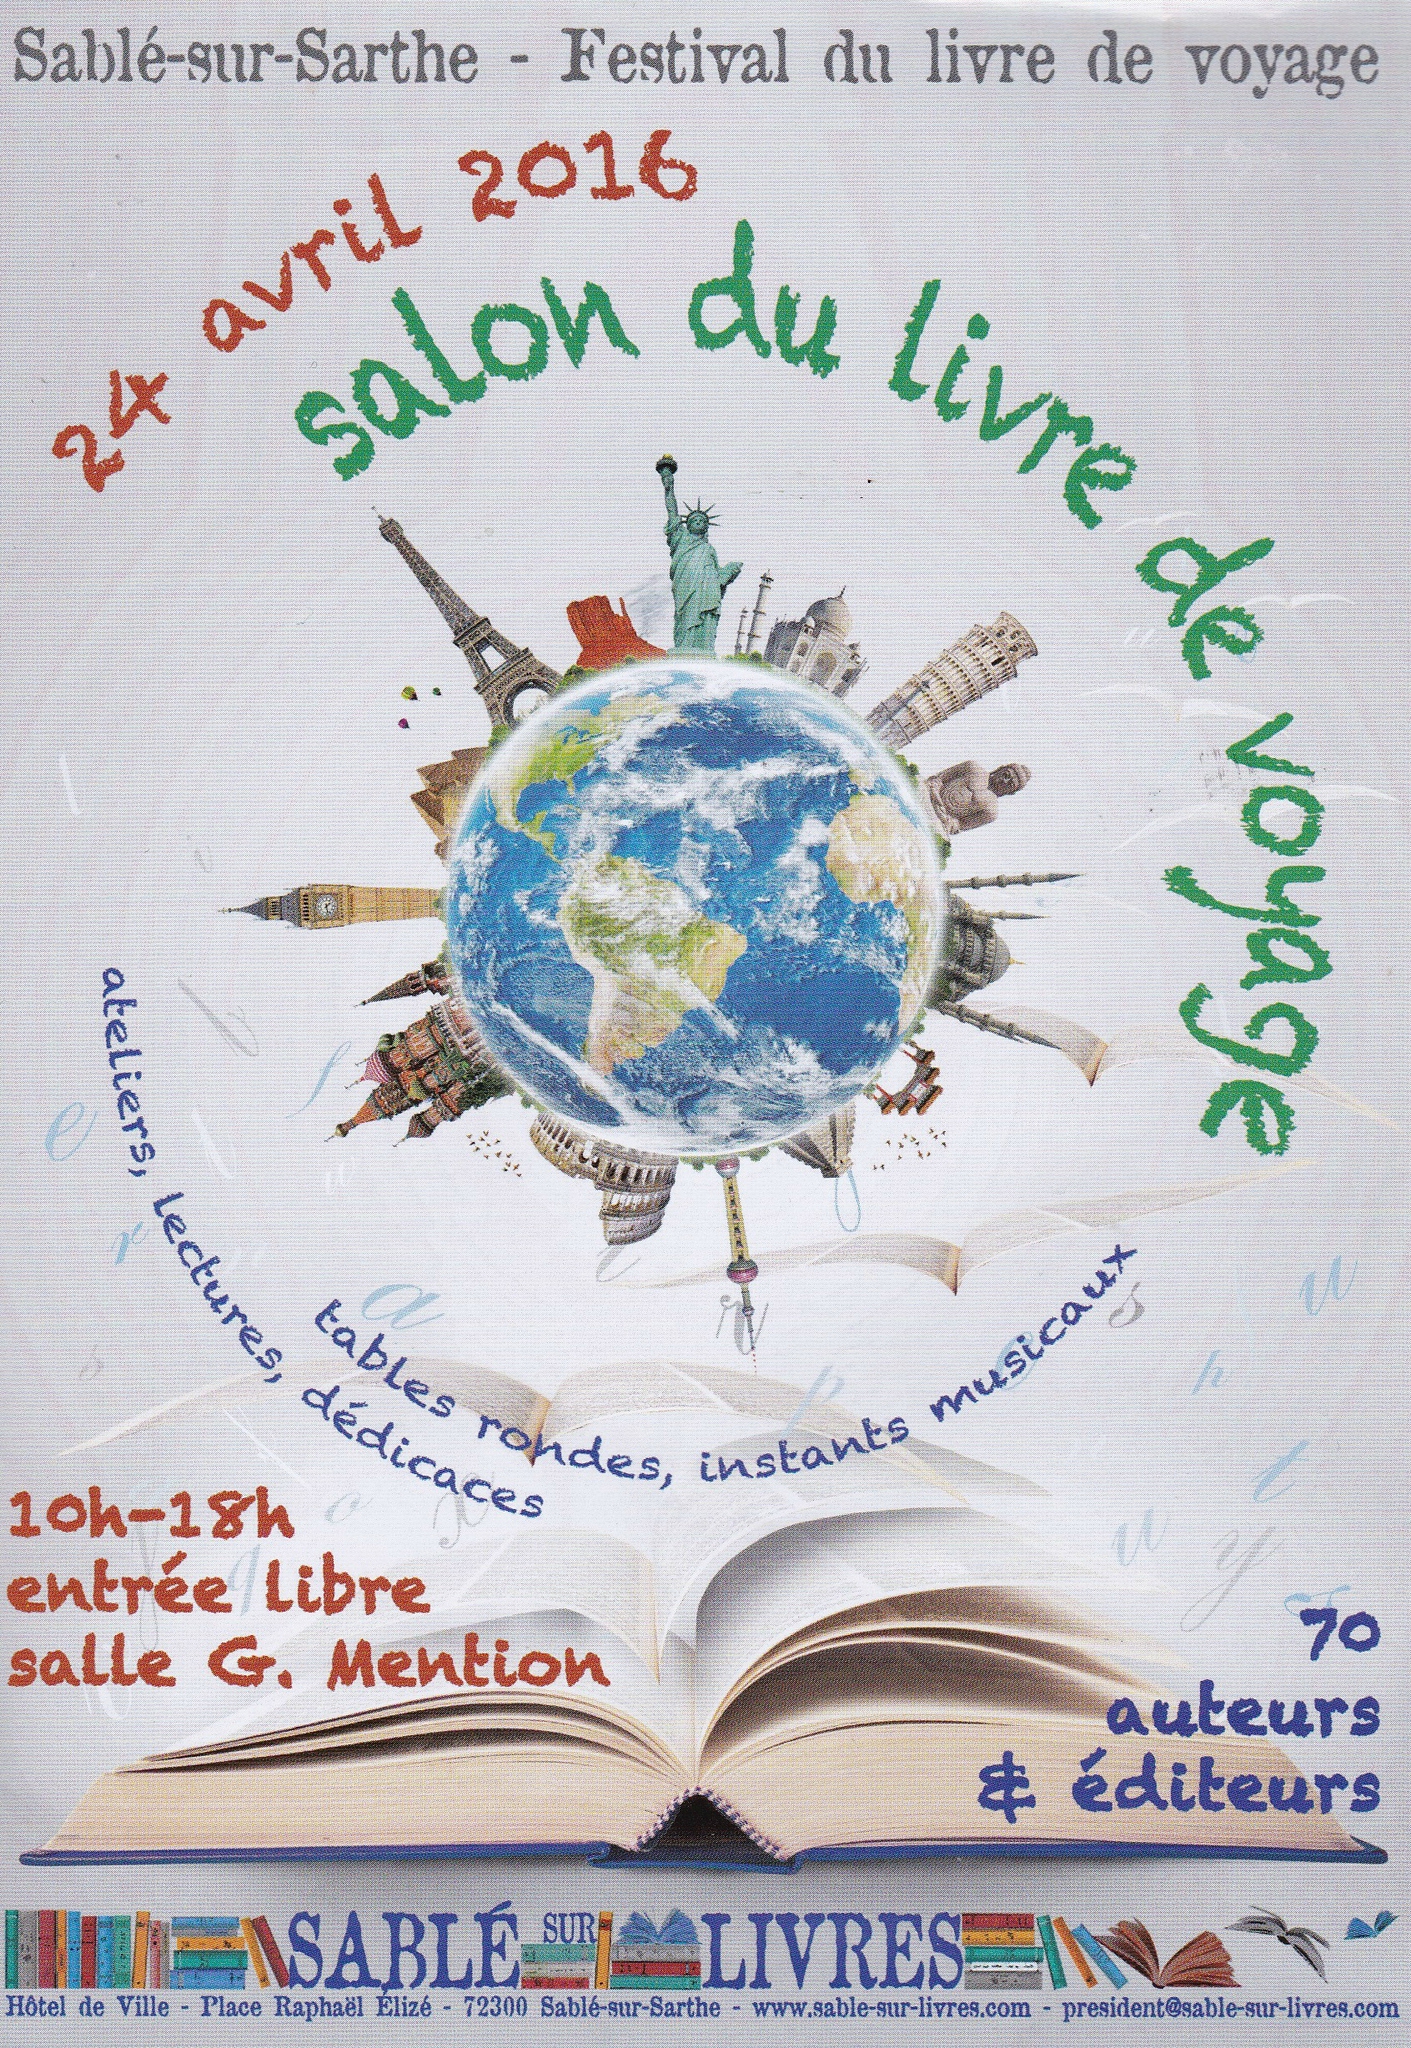 Sablé-sur-Sarthe - Festival du livre de voyage
24 avril 2016
salon du livre de voyage
ateliers, lectures, dédicaces
tables rondes, instants musicaux
10h-18h
entrée libre
salle G. Mention
70
auteurs
& éditeurs
SABLÉ SUR LIVRES
Hôtel de Ville - Place Raphaël Élizé - 72300 Sablé-sur-Sarthe - www.sable-sur-livres.com - president@sable-sur-livres.com